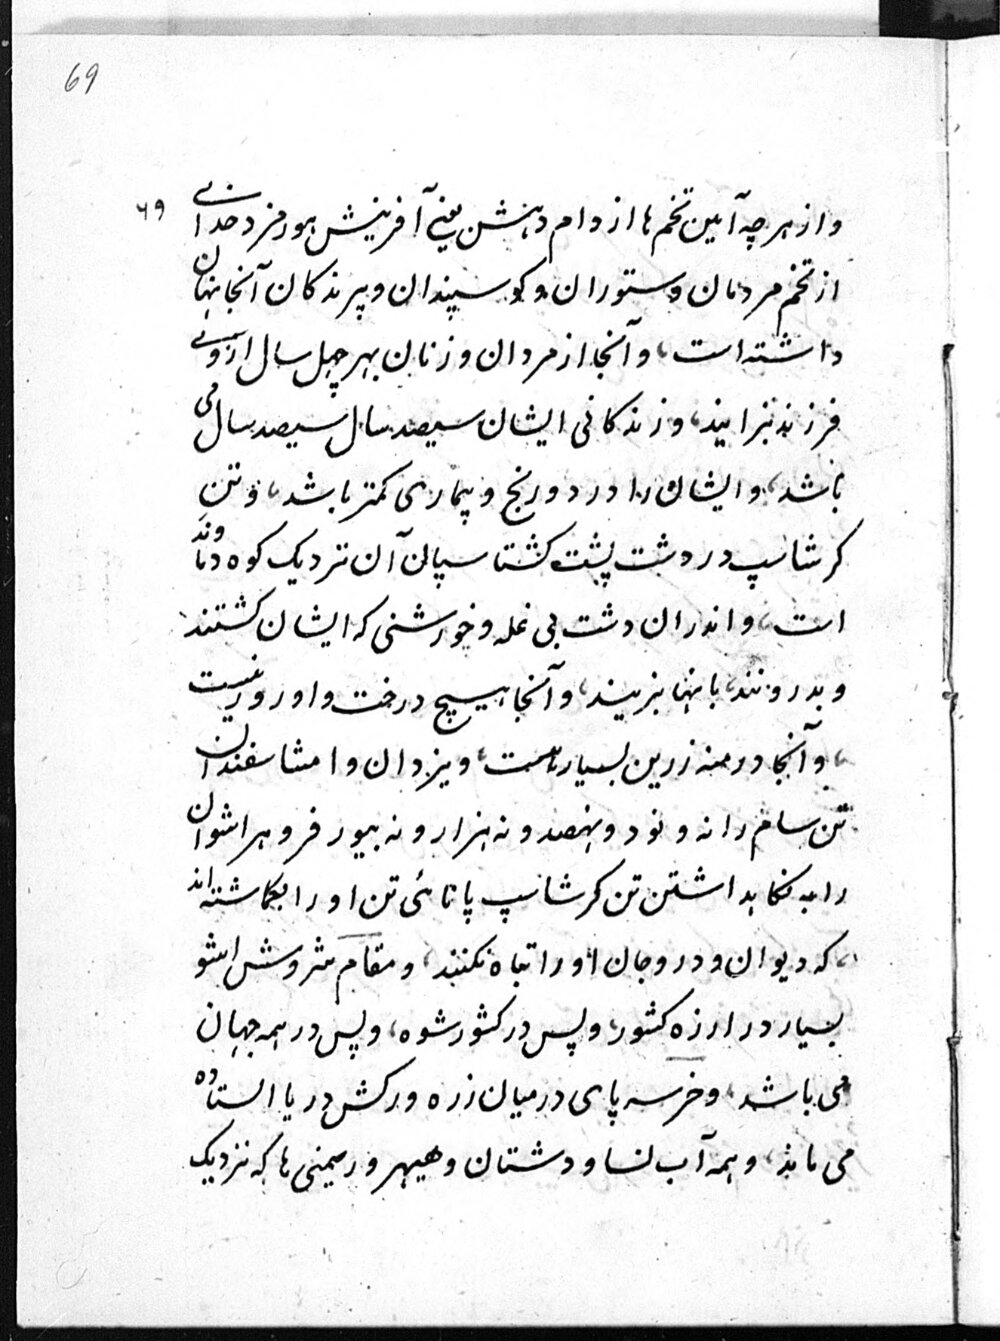 69
۶۹
و از هر چه آیین تخم ها از دوام دهشن یعنی آفرینش هورمزد خدای
از تخم مردمان و ستوران و کوسپندان و پرندکان آنجا بنهان
داشته است، و آنجا از مردان و زنان بهر چهل سال از وی
فرزند بزایند، و زندکانی ایشان سیصد سال سیصد سال می
باشد، و ایشان را درد و رنج و بیماری کمتر باشد، و تن
کرشاسپ در دشت پشت کشتاسپان آن نزدیک کوه دماوند
است، و اندران دشت بی غله و خورشنی که ایشان کشتند
و بدروند، با بنها بزیند، و آنجا هیچ درخت و اورور نیست
، و آنجا درمنه زرین بسیار است، و یزدان و امشاسفندان
تن سام را نه و نود و نهصد و نه هزار و نه بیور فروهر اشوان
را به نکاهداشتن تن کرشاسپ پانائی تن او را بکماشته اند
، که دیوان و دروجان او را تباه نکنند، و مقام سروش اشو
بسیار در ارزه کشور، و پس در کشور شوه، و پس در همه جهان
می باشد، و خر سه پای در میان زره ورکش دریا استاده
می ماند، و همه آب نسا و دشتان و هیهر و ریمنی ها که نزدیک